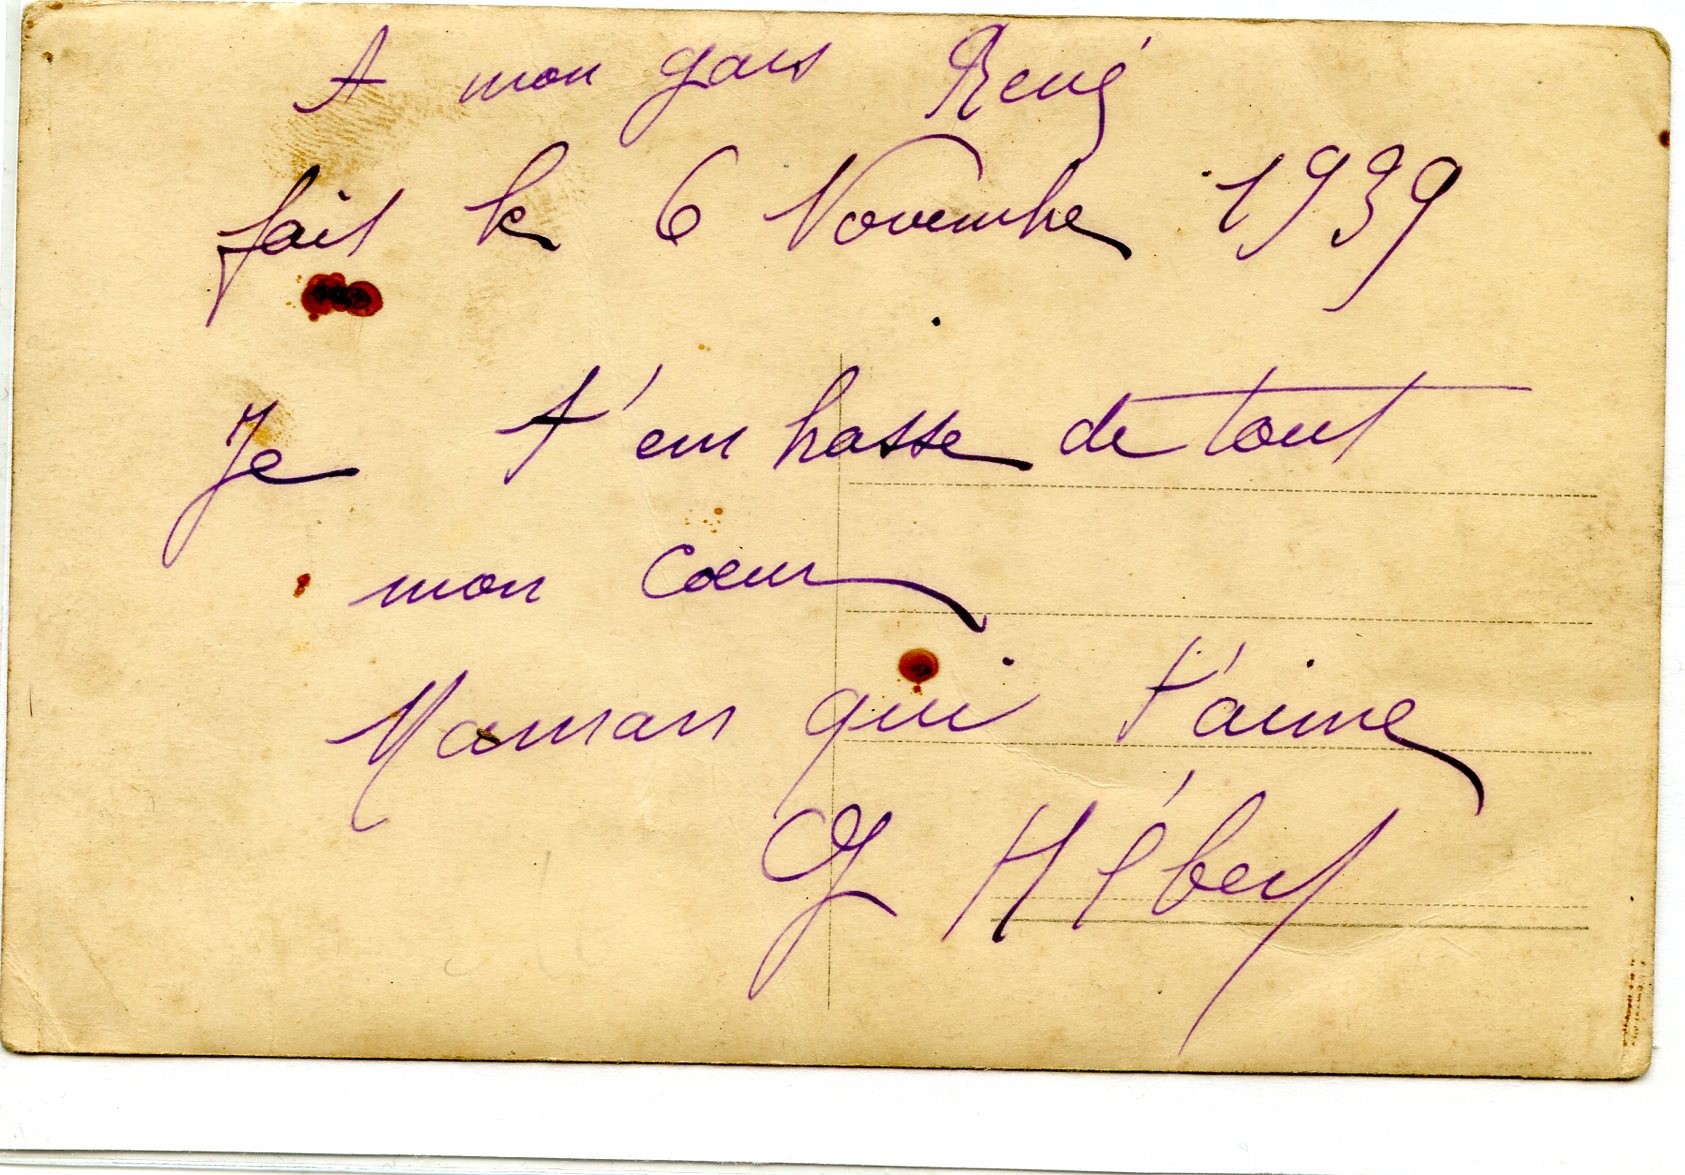 A mon gars René
fait le 6 Novembre 1939
Je t'embrasse de tout
mon Cœur
Maman qui t'aime
G Hébert